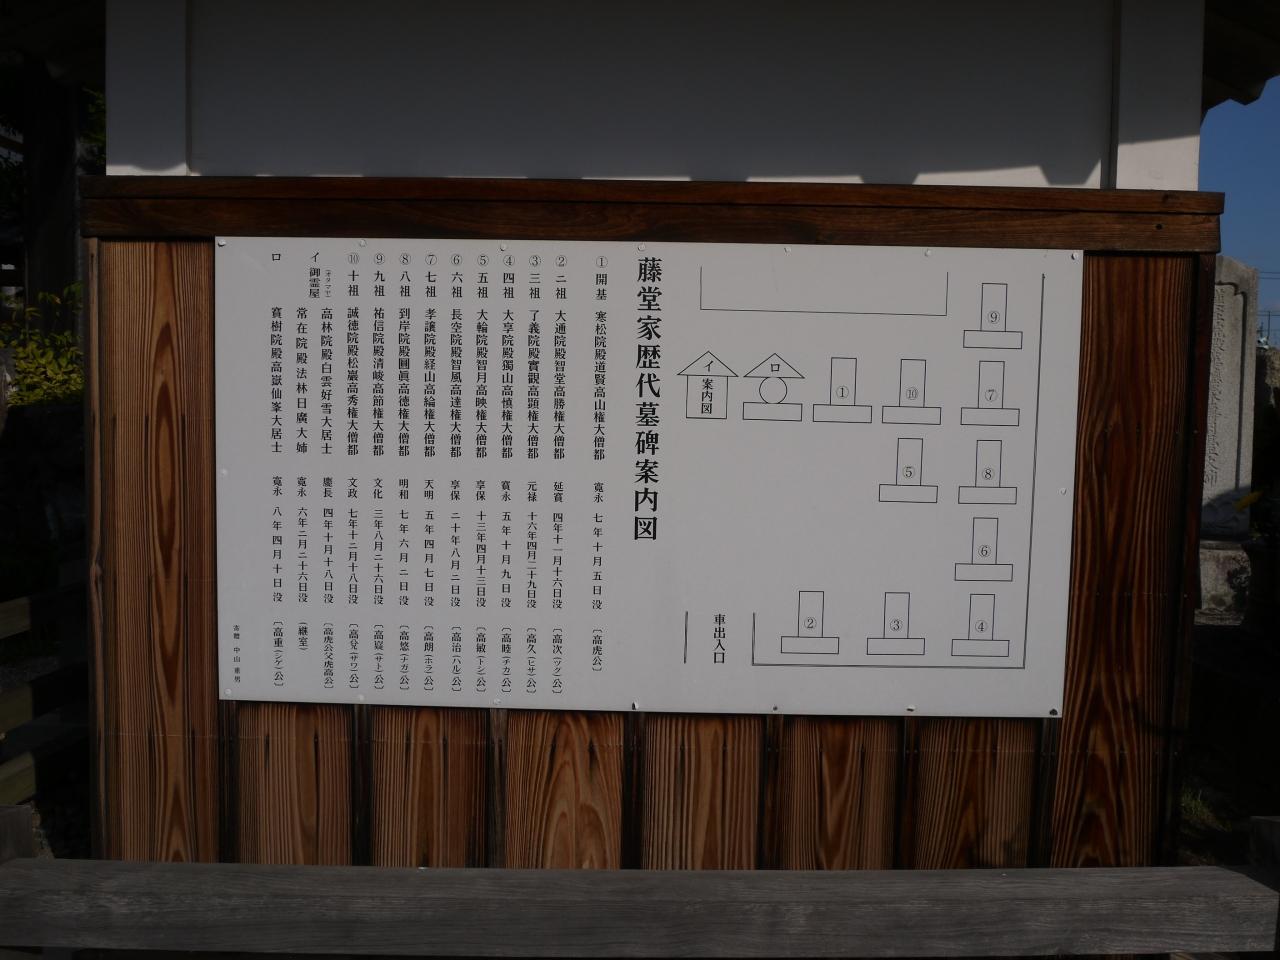 ⑨
イ
案内図
ロ
①
⑩
⑦
⑤
⑧
⑥
②
③
④
車出入口
藤堂家歴代墓碑案内図
①開基 寒松院殿道賢高山権大僧都 寛永 七年十月五日没 〔高虎公〕
②二祖 大通院殿智堂高勝権大僧都 延寶 四年十一月十六日没 〔高次(ツグ)公〕
③三祖 了義院殿實觀高顕権大僧都 元禄 十六年四月二十九日没 〔高久(ヒサ)公〕
④四祖 大享院殿獨山高慎権大僧都 寶永 五年十月九日没 〔高睦(チカ)公〕
⑤五祖 大輪院殿智月高映権大僧都 享保 十三年四月十三日没 〔高敏(トシ)公〕
⑥六祖 長空院殿智風高達権大僧都 享保 二十年八月二日没 〔高治(ハル)公〕
⑦七祖 孝譲院殿経山高綸権大僧都 天明 五年四月七日没 〔高朗(ホラ)公〕
⑧八祖 到岸院殿圓眞高徳権大僧都 明和 七年六月二日没 〔高悠(ナガ)公〕
⑨九祖 祐信院殿清峻高節権大僧都 文化 三年八月二十六日没 〔高嶷(サト)公〕
⑩十祖 誠徳院殿松巖高秀権大僧都 文政 七年十二月十八日没 〔高兌(サワ)公〕
イ 御霊屋(オタマヤ) 高林院殿白雲好雪大居士 慶長 四年十月十八日没 〔高虎公父虎高公〕
常在院殿法林日廣大姉 寛永 六年二月二十六日没 (継室)
ロ 寳樹院殿高嶽仙峯大居士 寛永 八年四月十日没 〔高重(シゲ)公〕
寄贈 中山重男